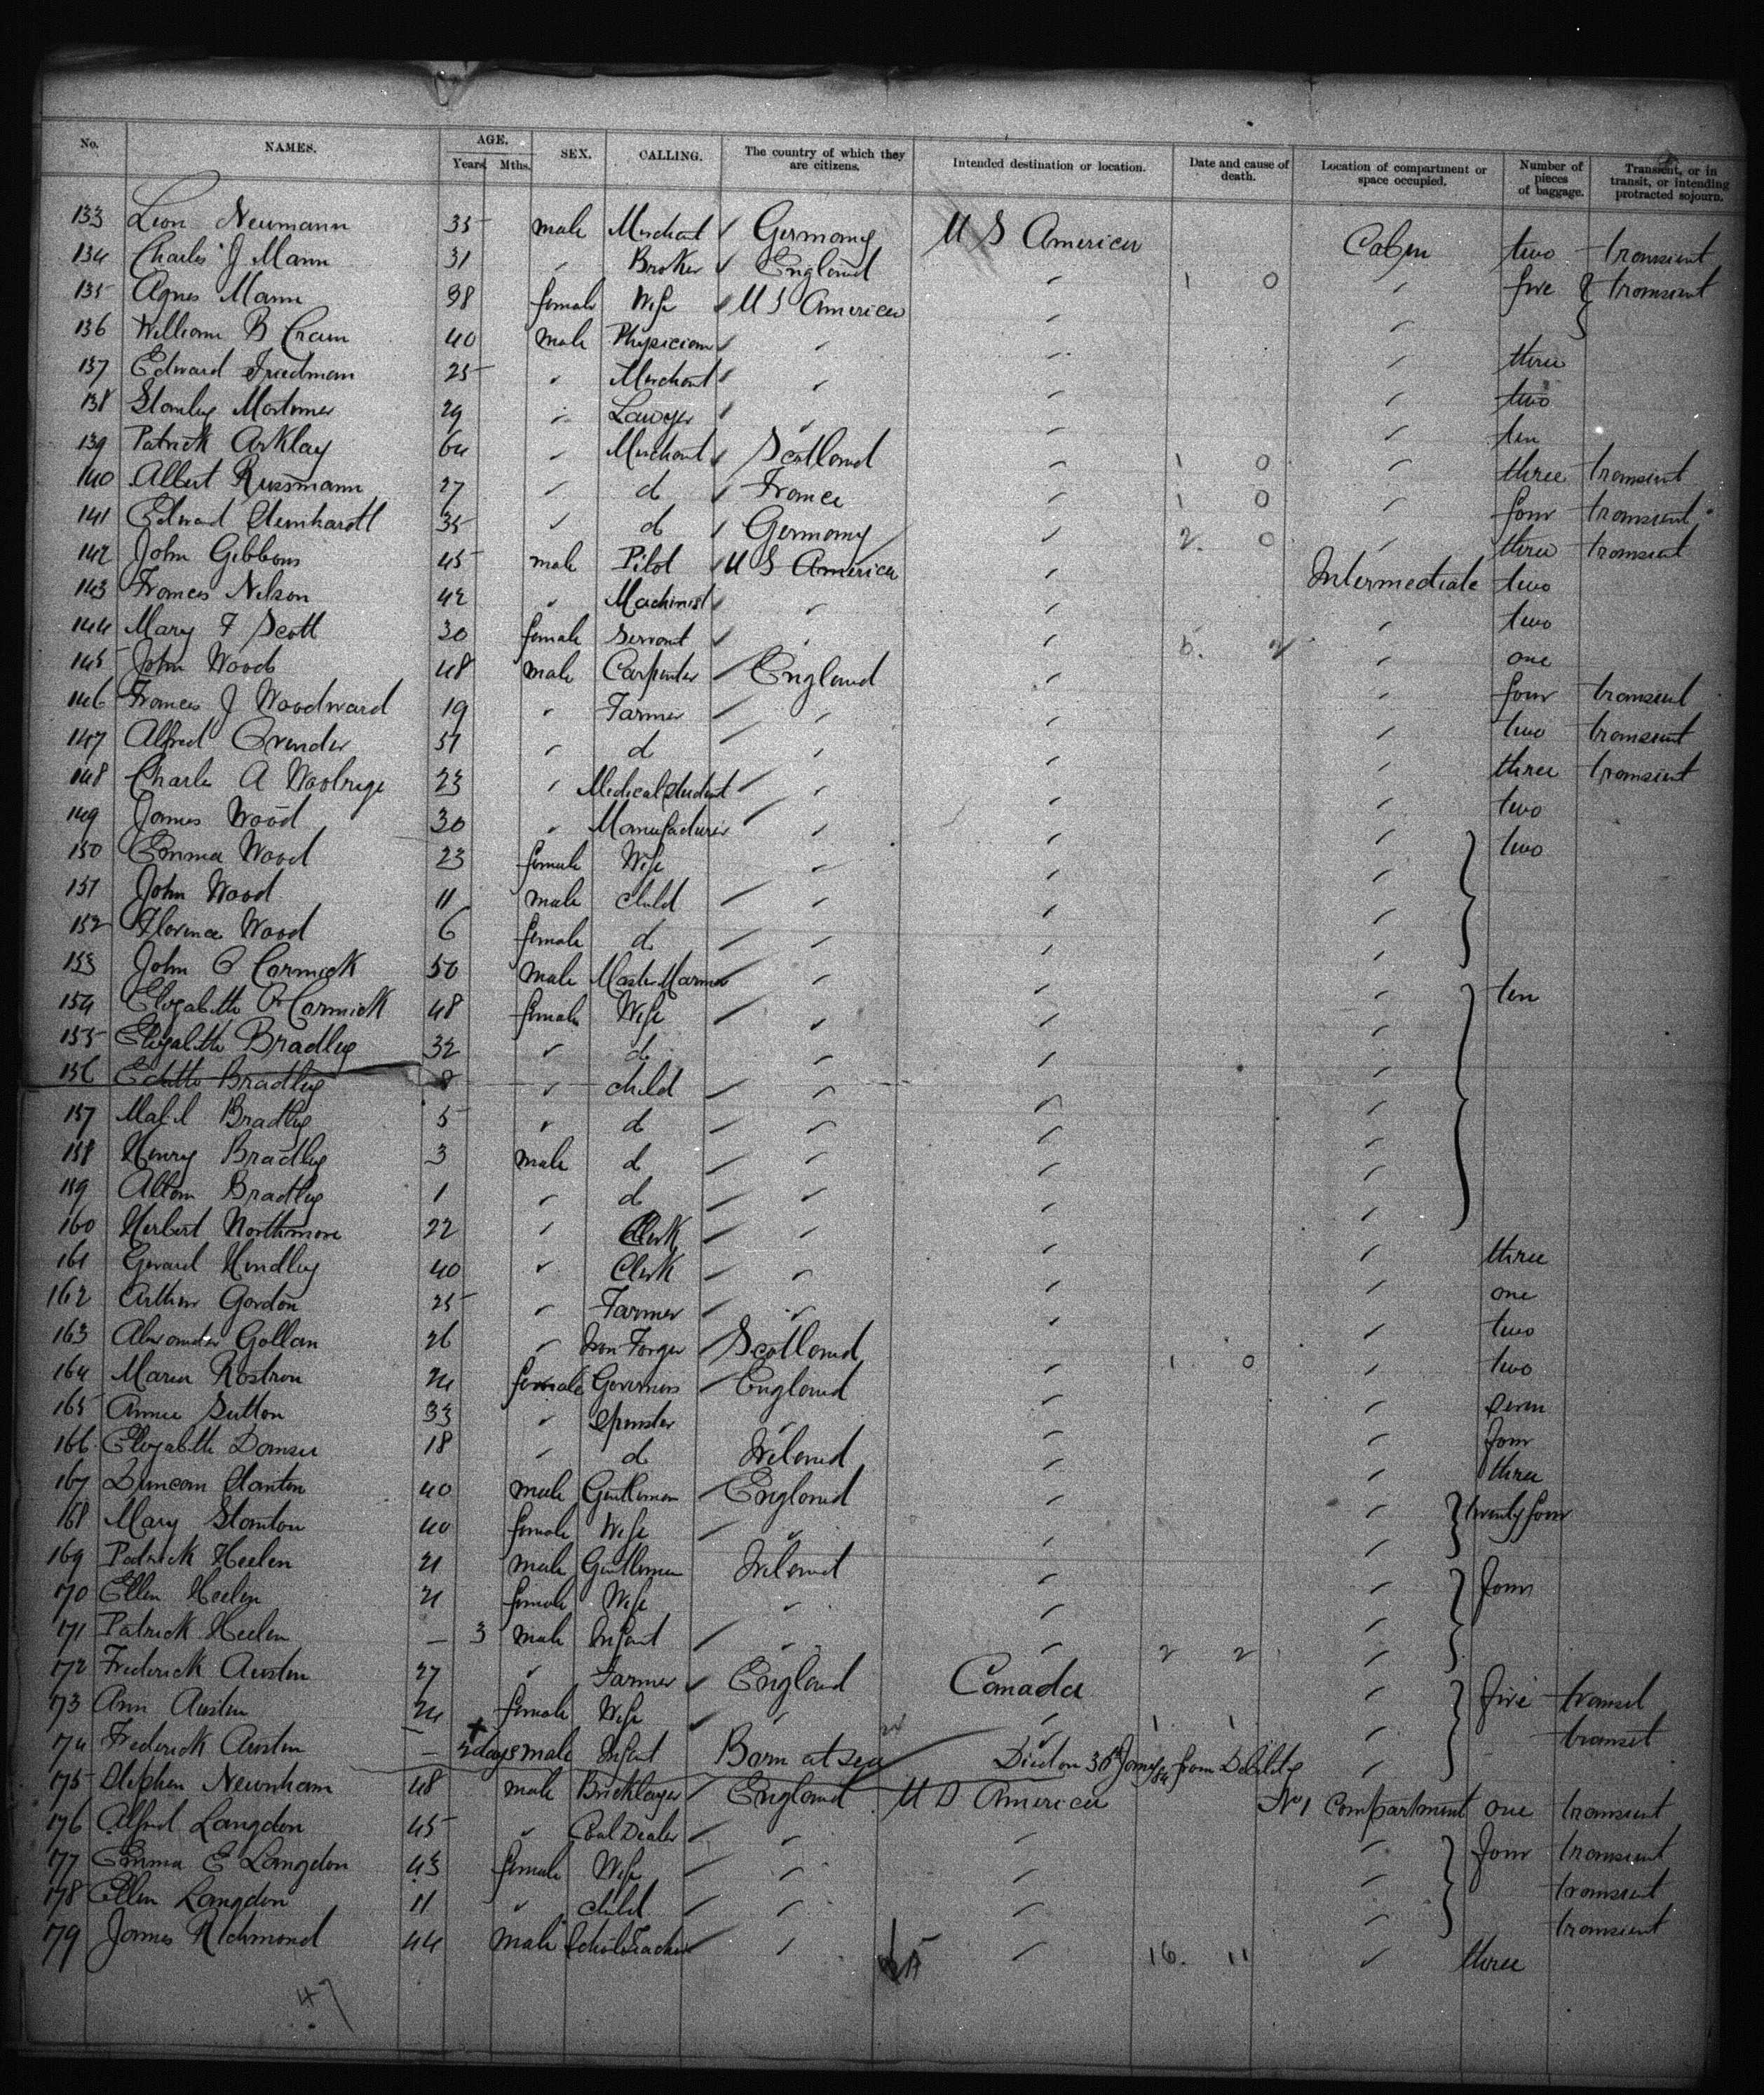 No. NAMES. AGE. Years Mths. SEX. CALLING. The country of which they are citizens. Intended destination or location. Date and cause of death. Location of compartment or space occupied. Number of pieces of baggage. Transient, or in transit, or intending protracted sojourn.
133 Leon Neumann 35 male Merchant Germany U S America Cabin two transient
134 Charles J Mann 31 " Broker England " 1 0 " five transient
135 Agnes Mann 38 female Wife U S America " "
136 William B Cram 40 male Physician " " " three
137 Edward Friedman 25 " Merchant " " two
138 Stanley Mortimer 29 " Lawyer " " " ten
139 Patrick Arklay 64 " Merchant Scotland " 1 0 " three transient
140 Albert Russmann 27 " d France " 1 0 " four transient
141 Edward Steinhardt 35 " d Germany " 2 0 " three transient
142 John Gibbons 45 male Pilot U S America " Intermediate two
143 Frances Nelson 42 " Machinist " " " two
144 Mary F Scott 30 female Servant " " 6. " one
145 John Woods 48 male Carpenter England " " four transient
146 Frances J Woodward 19 " Farmer " " " two transient
147 Alfred 51 " d " " " three transient
148 Charles A Woolrige 23 " Medical Student " " " two
149 James Wood 30 " Manufacturer " " " two
150 Emma Wood 23 female Wife " " "
151 John Wood 11 male child " " "
152 Florence Wood 6 female d " " "
153 John O Cormick 50 male Master Mariner " " " ten
154 Elizabeth O Cormick 48 female Wife " " "
155 Elizabeth Bradley 32 " d " " "
156 Edith Bradley 8 " child " " "
157 Mabel Bradley 5 " d " " "
158 Henry Bradley 3 male d " " "
159 Bradley 1 " d " " "
160 Herbert Northmore 22 " Clerk " " " three
161 Gerard Hindley 40 " Clerk " " " one
162 Arthur Gordon 25 " Farmer " " " two
163 Alexander Gollan 26 " Iron Forger Scotland " 1 0 " two
164 Maria Rostron 24 female Governess England " " seven
165 Annie Sutton 33 " Spinster " " " four
166 Elizabeth 18 " d Ireland " " three
167 Duncan Stanton 40 male Gentleman England " " twenty four
168 Mary Stanton 40 female Wife " " "
169 Patrick Heelen 21 male Gentleman Ireland " " four
170 Ellen Heelen 21 female Wife " " "
171 Patrick Heelen — 3 male Infant " " 2 2 "
172 Frederick Austin 27 " Farmer England Canada " five transit
173 Ann Austin 24 female Wife " " 1 1 " transit
174 Frederick Austin — 2 days male Infant Born at sea Died on 30th Jany/84 from Debility "
175 Stephen Newnham 48 male Bricklayer England U S America No 1 Compartment one transient
176 Alfred Langdon 45 " Coal Dealer " " " four transient
177 Emma E Langdon 43 female Wife " " " transient
178 Ellen Langdon 11 " child " " " transient
179 James Richmond 44 male School Teacher " " 16. 11 " three
47